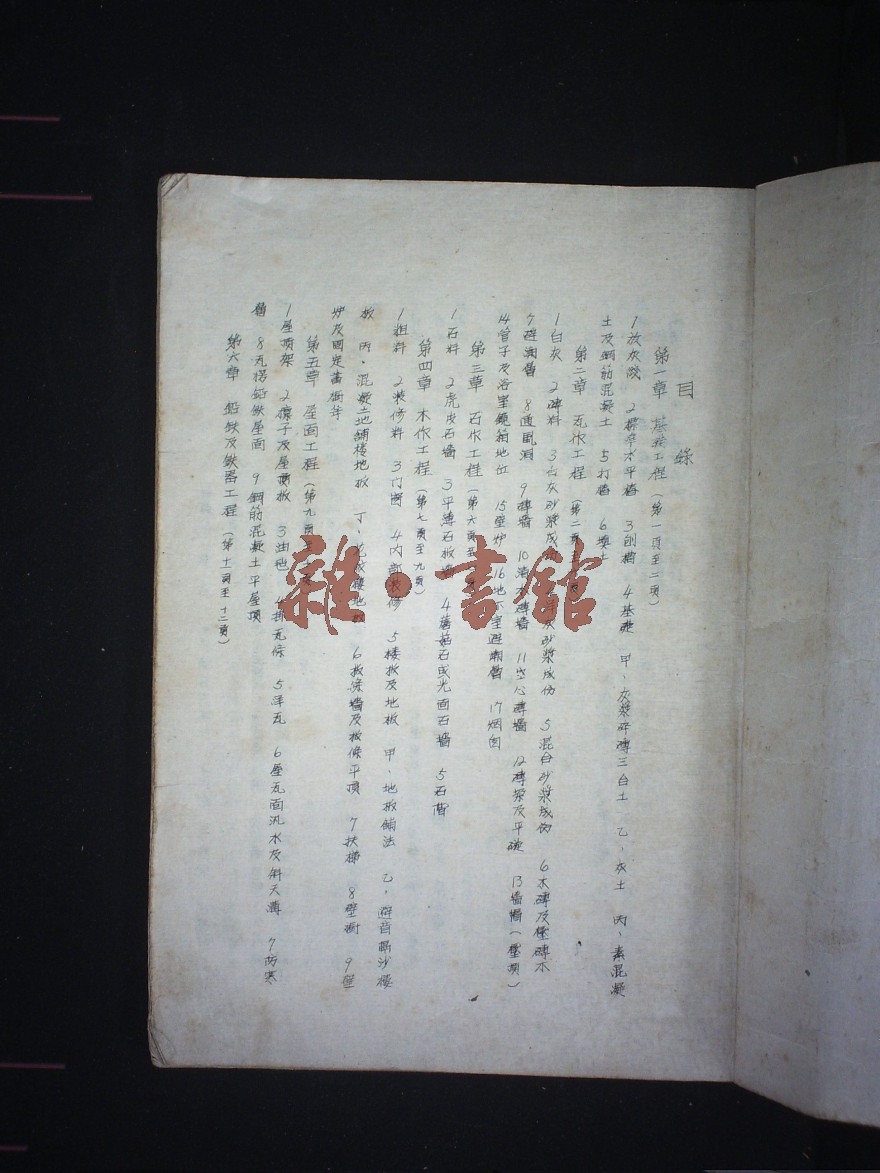 目錄
第一章 基礎工程（第一頁至二頁）
1放灰綫 2標準水平樁 3刨槽 4基礎 甲、灰漿碎磚三合土 乙、灰土 丙、素混凝
土及鋼筋混凝土 5打樁 6填土
第二章 瓦作工程（第二頁至
1白灰 2磚料 3白灰砂漿成份 洋灰砂漿成份 5混合砂漿成份 6木磚及壓磚木
7避潮層 8通風洞 9磚墻 10清水磚墻 11空心磚墻 12磚券及平碹 13墻帽（壓頂）
14管子及浴室鏡箱地位 15壁炉 16地下室避潮層 17烟囱
第三章 石作工程（第六頁至
1石料 2虎皮石墻 3平薄石板墻 4蘑菇石或光面石墻 5石階
第四章 木作工程（第七頁至九頁）
1粗料 2裝修料 3门窗 4内部裝修 5楼板及地板 甲、地板舖法 乙、避音隔沙楼
板 丙、混凝土地舖楼地板 丁、 楼地板 6板條墻及板條平頂 7扶梯 8壁橱 9壁
炉及固定書橱等
第五章 屋面工程（第九頁
1屋頂架 2檁子及屋頂板 3油毡 4掛瓦條 5洋瓦 6屋瓦面汎水及斜天溝 7防寒
層 8瓦楞鉛鉄屋面 9鋼筋混凝土平屋頂
第六章 鉛鉄及鉄器工程（第十一頁至十二頁）
雜·書館